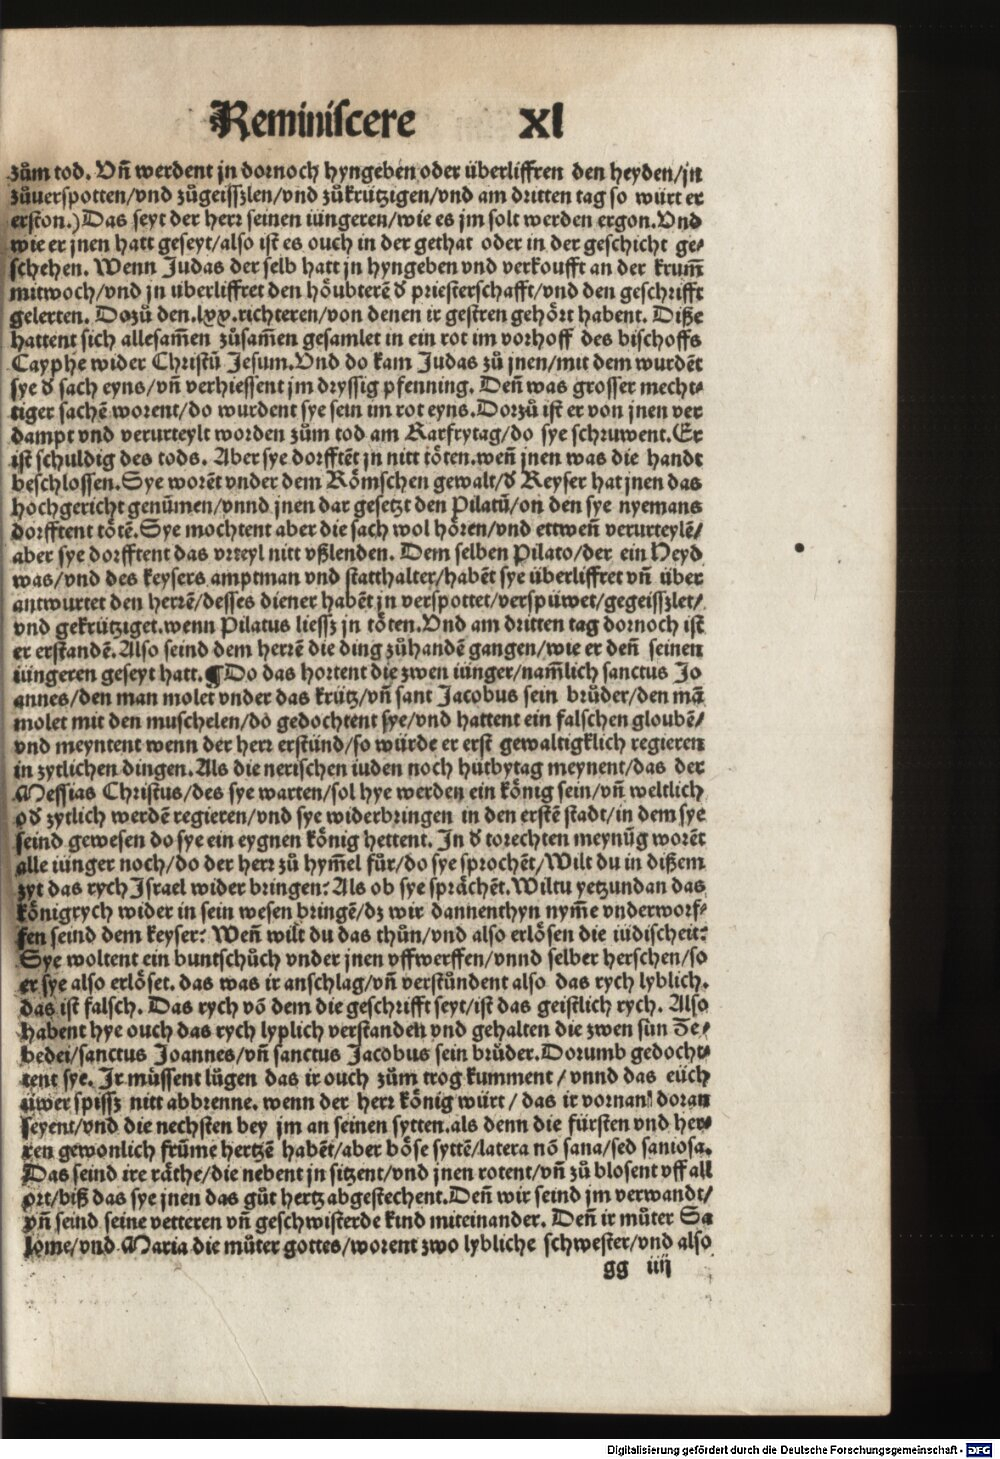 Reminiscere XL
zům tod. Vñ werdent jn dornoch hyngeben oder überliffren den heyden/jn
zůuerspotten/vnd zůgeisszlen/vnd zůkrützigen/vnd am dritten tag so würt er
erston.) Das seyt der herr seinen iüngeren/wie es jm solt werden ergon. Vnd
wie er jnen hatt geseyt/also ist es ouch in der gethat oder in der geschicht ge⸗
schehen. Wenn Judas der selb hatt jn hyngeben vnd verkoufft an der krum̄
mitwoch/vnd jn überliffret den höubterẽ d̕ priesterschafft/vnd den geschrifft
gelerten. Dozů den .lxx. richteren/von denen ir gestren gehört habent. Diße
hattent sich allesam̄en zůsam̄en gesamlet in ein rot im vorhoff des bischoffs
Cayphe wider Christũ Jesum. Vnd do kam Judas zů jnen/mit dem wurdẽt
sye d̕ sach eyns/vñ verhiessent jm dryssig pfenning. Deñ was grosser mech⸗
tiger sachẽ worent/do wurdent sye sein im rot eyns. Dorzů ist er von jnen ver
dampt vnd verurteylt worden zům tod am Karfrytag/do sye schruwent. Er
ist schuldig des tods. Aber sye dorfftẽt jn nitt töten. weñ jnen was die handt
beschlossen. Sye worẽt vnder dem Römschen gewalt/d̕ Keyser hat jnen das
hochgericht genũmen/vnnd jnen dar gesetzt den Pilatũ/on den sye nyemans
dorfftent tötẽ. Sye mochtent aber die sach wol hören/vnd ettweñ verurteylẽ/
aber sye dorfftent das vrteyl nitt vßlenden. Dem selben Pilato/der ein Heyd
was/vnd des keysers amptman vnd statthalter/habẽt sye überliffret vñ über
antwurtet den herrẽ/desses diener habẽt jn verspottet/verspüwet/gegeisszlet/
vnd gekrütziget. wenn Pilatus liessz jn töten. Vnd am dritten tag dornoch ist
er erstandẽ. Also seind dem herrẽ die ding zůhandẽ gangen/wie er deñ seinen
iüngeren geseyt hatt. ¶Do das hortent die zwen iünger/nam̄lich sanctus Jo
annes/den man molet vnder das krütz/vñ sant Jacobus sein brůder/den mã
molet mit den muschelen/do gedochtent sye/vnd hattent ein falschen gloubẽ/
vnd meyntent wenn der herr erstünd/so würde er erst gewaltigklich regieren
in zytlichen dingen. Als die nerischen iuden noch hütbytag meynent/das der
Messias Christus/des sye warten/sol hye werden ein könig sein/vñ weltlich
od̕ zytlich werdẽ regieren/vnd sye widerbringen in den erstẽ stadt/in dem sye
seind gewesen do sye ein eygnen könig hettent. In d̕ torechten meynũg worẽt
alle iünger noch/do der herr zů hym̄el fůr/do sye sprochẽt/Wilt du in dißem
zyt das rych Israel wider bringen? Als ob sye sprächẽt. Wiltu yetzundan das
königrych wider in sein wesen bringẽ/dz wir dannenthyn nym̄e vnderworf⸗
fen seind dem keyser? Weñ wilt du das thůn/vnd also erlösen die iüdischeit?
Sye woltent ein buntschůch vnder jnen vffwerffen/vnnd selber herschen/so
er sye also erlöset. das was ir anschlag/vñ verstůndent also das rych lyblich.
das ist falsch. Das rych võ dem die geschrifft seyt/ist das geistlich rych. Also
habent hye ouch das rych lyplich verstanden vnd gehalten die zwen sün Ze⸗
bedei/sanctus Joannes/vñ sanctus Jacobus sein brůder. Dorumb gedoch⸗
tent sye. Ir müssent lůgen das ir ouch zům trog kumment/vnnd das eüch
üwer spissz nitt abbrenne. wenn der herr könig würt/das ir vornan doran
seyent/vnd die nechsten bey jm an seinen sytten. als denn die fürsten vnd her⸗
ren gewonlich frũme hertzẽ habẽt/aber böse syttẽ/latera nõ sana/sed saniosa.
Das seind ire räthe/die nebent jn sitzent/vnd jnen rotent/vñ zů blosent vff all
ort/biß das sye jnen das gůt hertz abgestechent. Deñ wir seind jm verwandt/
vñ seind seine vetteren vñ geschwisterde kind miteinander. Deñ ir můter Sa
lome/vnd Maria die můter gottes/worent zwo lybliche schwester/vnd also
gg iiij
Digitalisierung gefördert durch die Deutsche Forschungsgemeinschaft - DFG